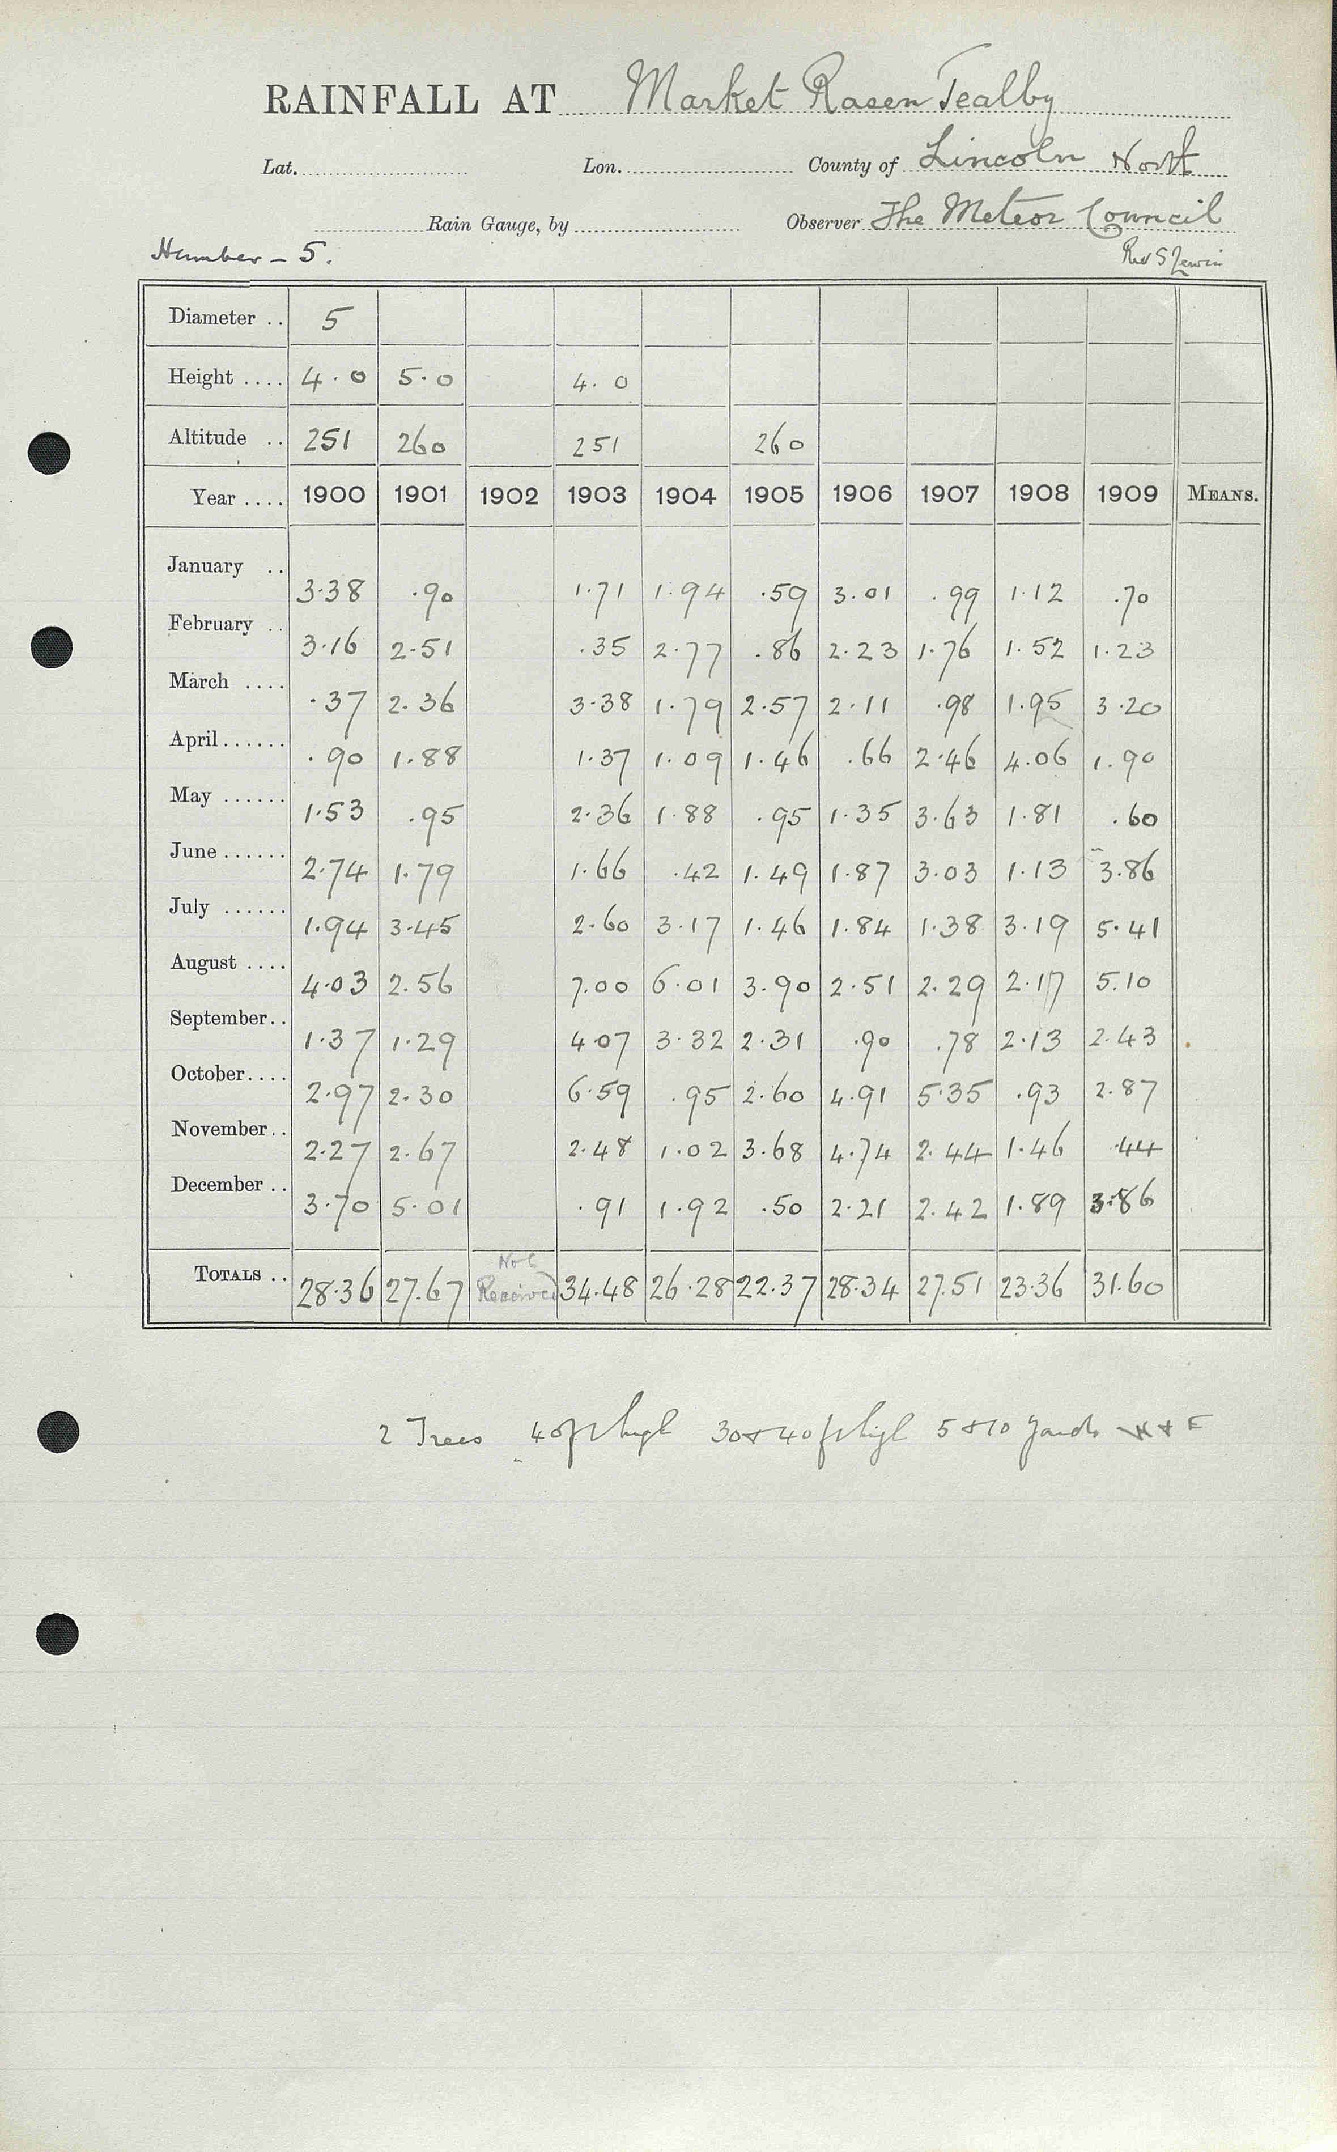 RAINFALL AT Market Rasen Tealby
Lat. Lon. County of Lincoln North
Rain Gauge, by Observer The Meteor Council
Humber - 5. Rev S Lewin
Diameter .. 5
Height .... 4.0 5.0 4.0
Altitude .. 251 260 251 260
Year .... 1900 1901 1902 1903 1904 1905 1906 1907 1908 1909 MEANS.
January .. 3.38 .90 1.71 1.94 .59 3.01 .99 1.12 .70
February .. 3.16 2.51 .35 2.77 .86 2.23 1.76 1.52 1.23
March .... .37 2.36 3.38 1.79 2.57 2.11 .98 1.95 3.20
April...... .90 1.88 1.37 1.09 1.46 .66 2.46 4.06 1.90
May ...... 1.53 .95 2.36 1.88 .95 1.35 3.63 1.81 .60
June ...... 2.74 1.79 1.66 .42 1.49 1.87 3.03 1.13 3.86
July ...... 1.94 3.45 2.60 3.17 1.46 1.84 1.38 3.19 5.41
August .... 4.03 2.56 7.00 6.01 3.90 2.51 2.29 2.17 5.10
September.. 1.37 1.29 4.07 3.32 2.31 .90 .78 2.13 2.43
October.... 2.97 2.30 6.59 .95 2.60 4.91 5.35 .93 2.87
November.. 2.27 2.67 2.48 1.02 3.68 4.74 2.44 1.46 .44
December .. 3.70 5.01 .91 1.92 .50 2.21 2.42 1.89 3.86
TOTALS .. 28.36 27.67 Not Received 34.48 26.28 22.37 28.34 27.51 23.36 31.60
2 Trees 40 ft high 30 & 40 ft high 5 & 10 yards W & E